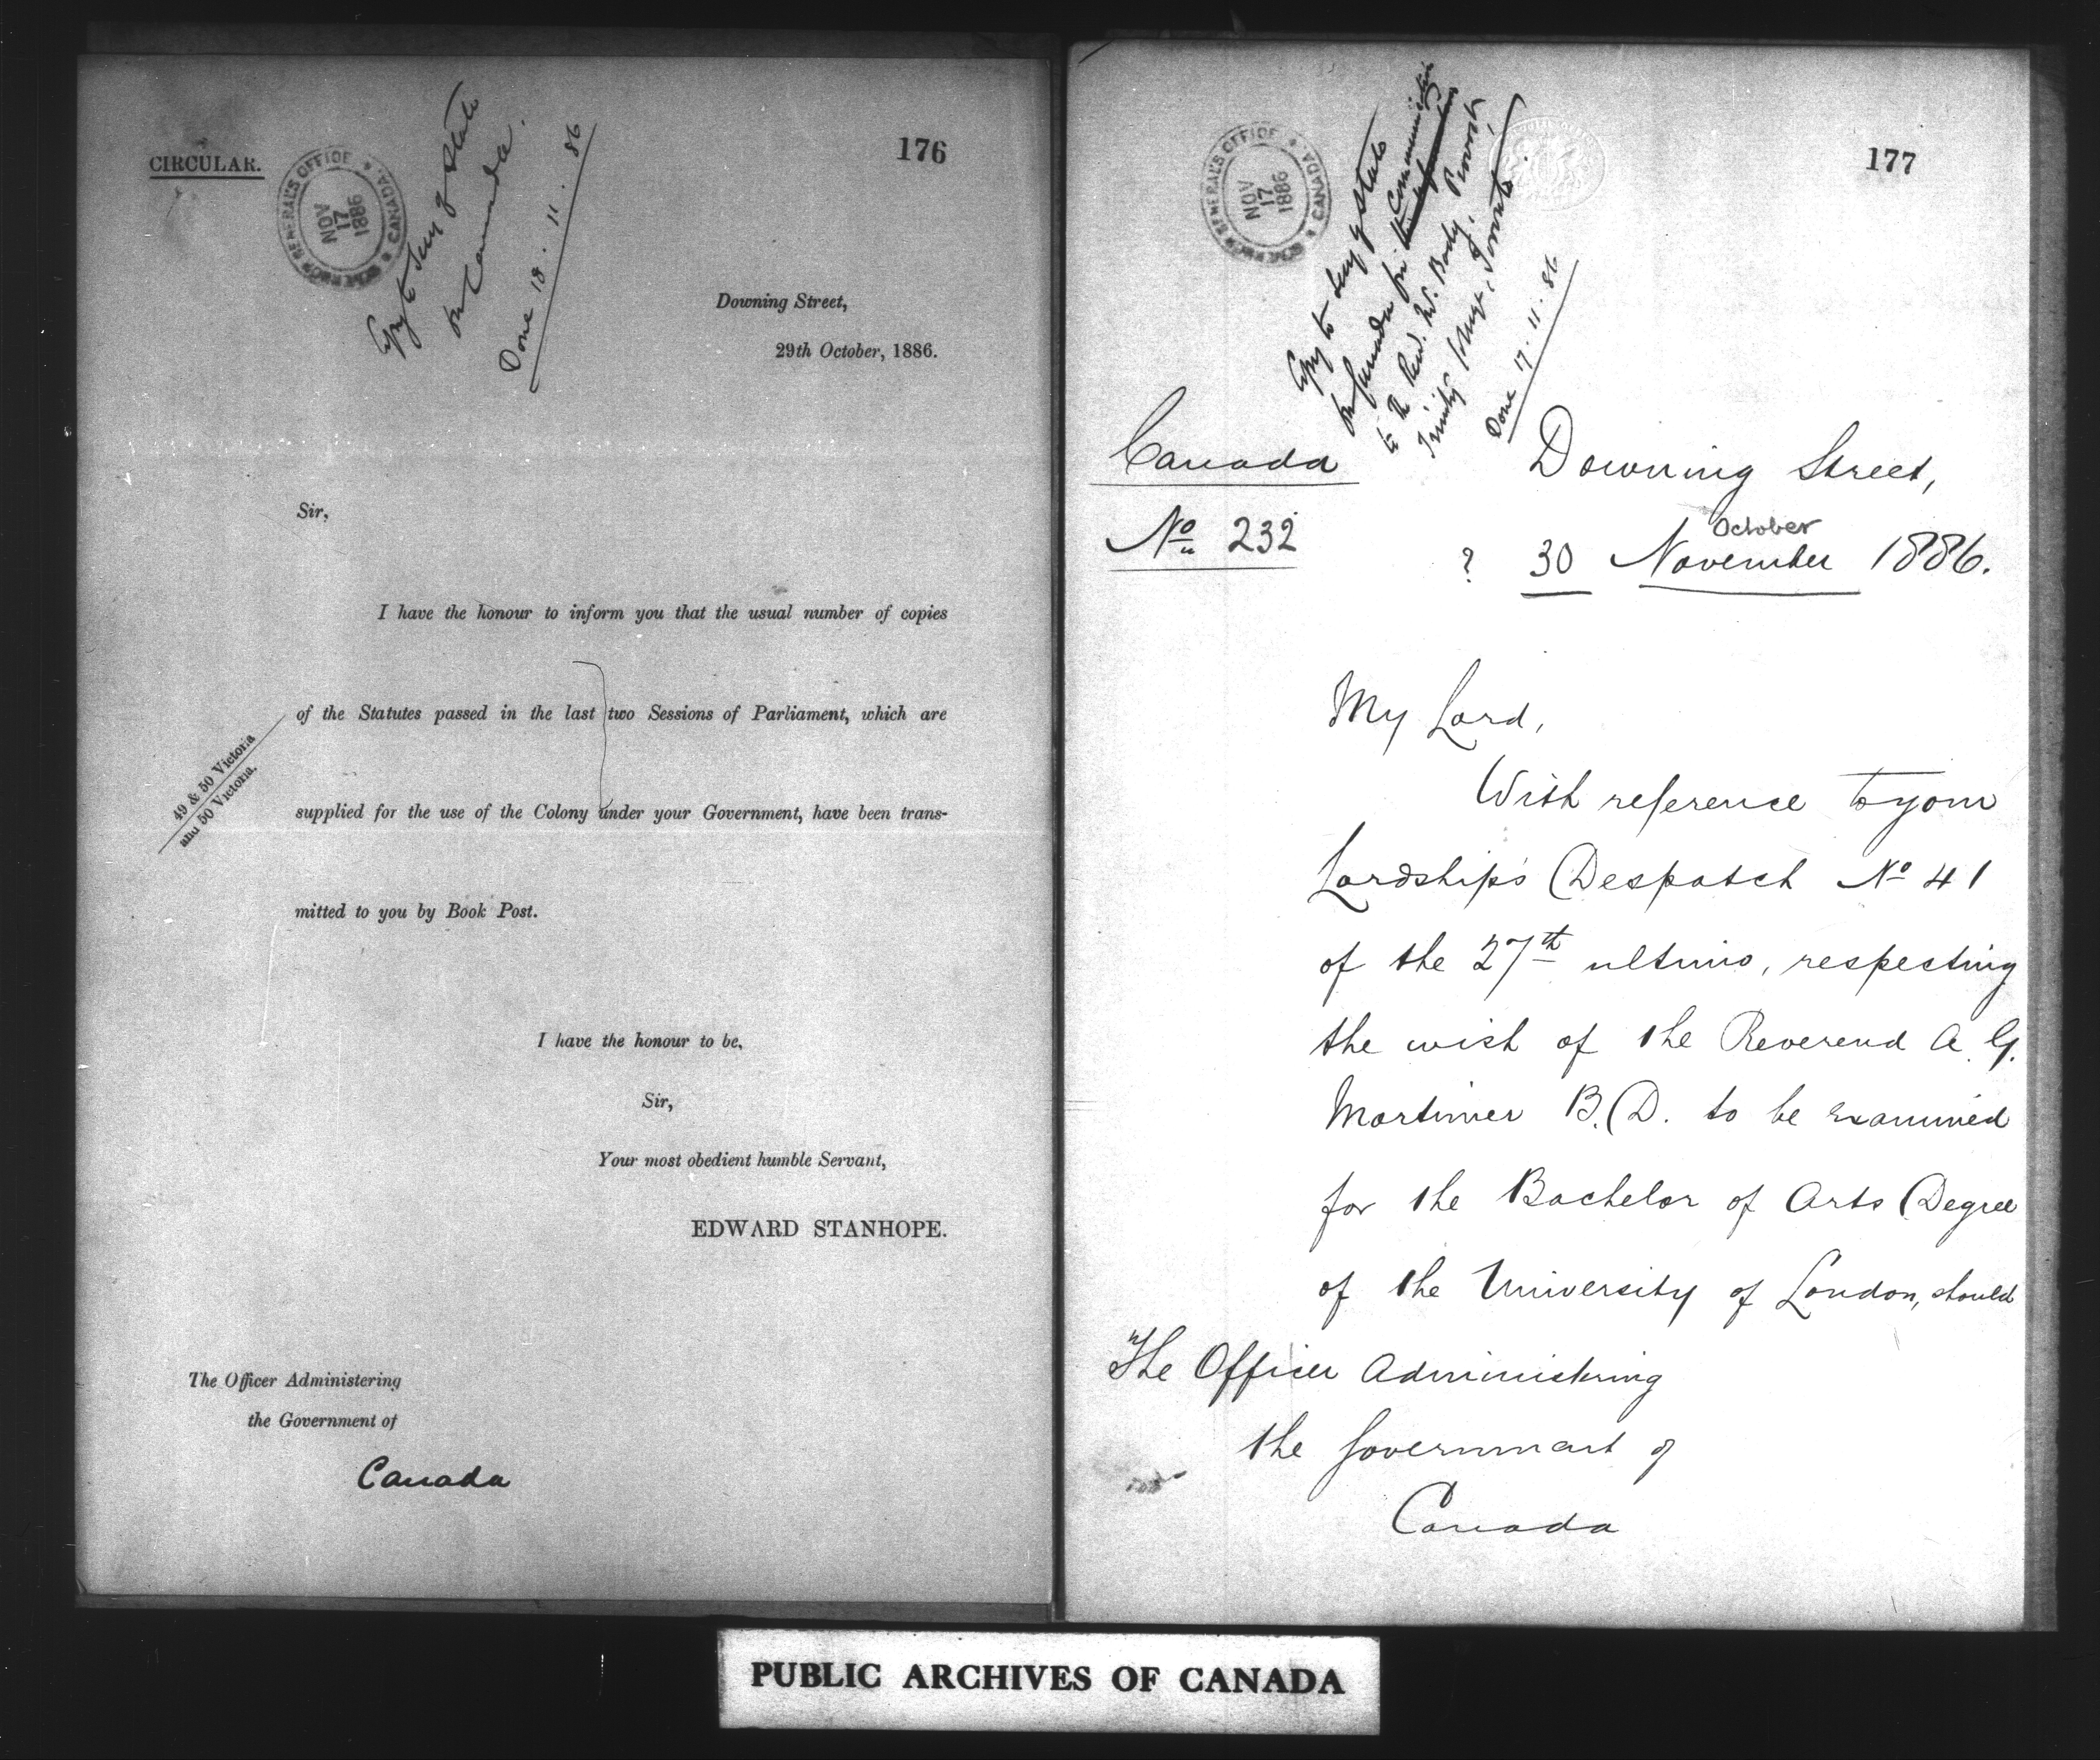 CIRCULAR.
GOVERNOR GENERAL'S OFFICE
CANADA
NOV
17
1886
Copy to Secy of State
for Canada.
Done 18.11.86
176
Downing Street,
29th October, 1886.
Sir,
I have the honour to inform you that the usual number of copies
of the Statutes passed in the last two Sessions of Parliament, which are
49 & 50 Victoria
and 50 Victoria.
supplied for the use of the Colony under your Government, have been trans-
mitted to you by Book Post.
I have the honour to be,
Sir,
Your most obedient humble Servant,
EDWARD STANHOPE.
The Officer Administering
the Government of
Canada
177
GOVERNOR GENERAL'S OFFICE
CANADA
NOV
17
1886
Copy to Secy of State
for Canada for communication
to the Revd. W. Body, Provost,
Trinity College, Toronto.
Done 17.11.86
Canada
No 232
Downing Street,
October
? 30 November 1886.
My Lord,
With reference to your
Lordship's Despatch No 41
of the 27th ultimo, respecting
the wish of the Reverend A. G.
Mortimer B.D. to be examined
for the Bachelor of Arts Degree
of the University of London, should
The Officer Administering
the Government of
Canada
PUBLIC ARCHIVES OF CANADA